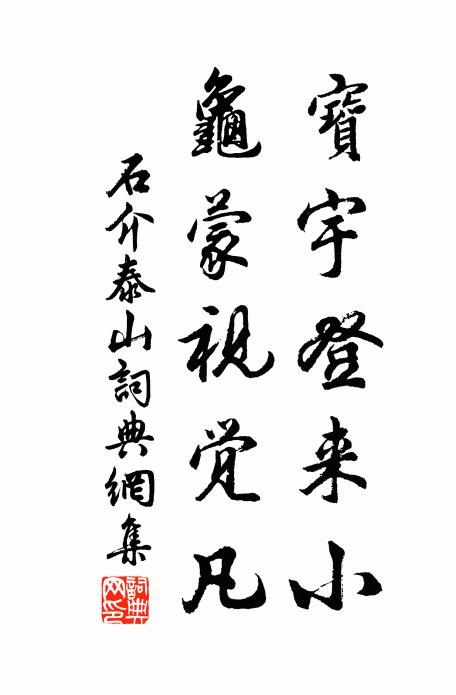 寶宇登来小
龜蒙視覚凡
石介泰山詞典網集
詞典网印